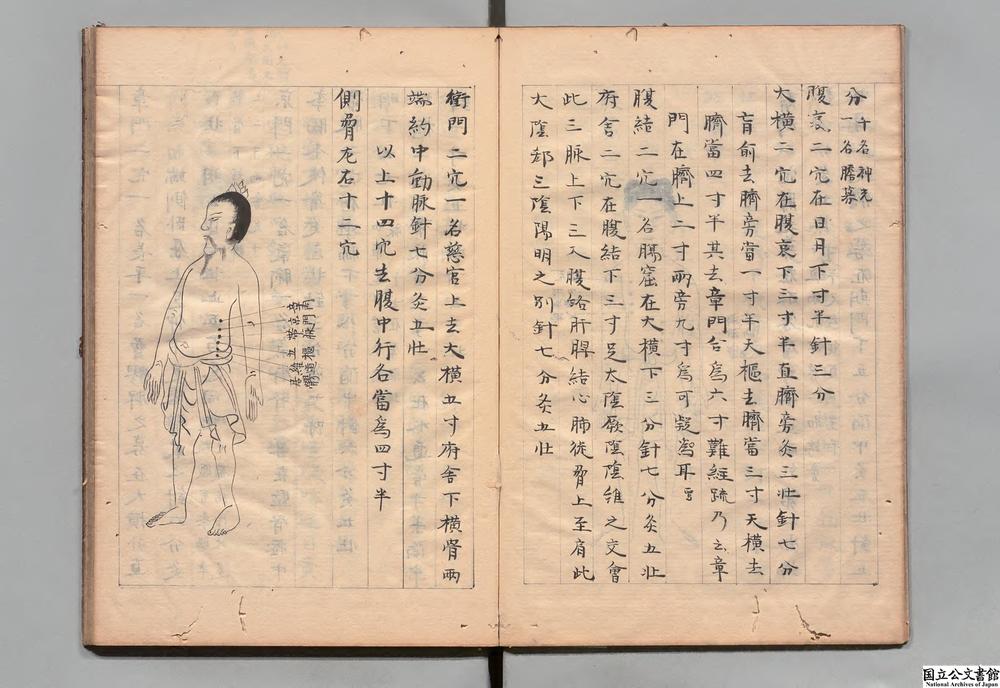 分 一名神光
一名膽募
腹哀二穴在日月下一寸半針三分
大橫二穴在腹哀下三寸半直臍旁灸三壯針七分
肓俞去臍旁當一寸半天樞去臍當三寸天橫去
臍當四寸半其去章門合爲六寸難經疏乃云章
門在臍上二寸兩旁九寸爲可疑爲耳
腹結二穴一名腸窟在大橫下三分針七分灸五壯
府舍二穴在腹結下三寸足太陰厥陰陰維之交會
此三脉上下三入腹絡肝脾結心肺從脅上至肩此
大陰郄三陰陽明之別針七分灸五壯
衝門二穴一名慈宮上去大橫五寸府舍下橫骨兩
端約中動脉針七分灸五壯
以上十四穴去腹中行各當爲四寸半
側脅左右十二穴
章門
京門
帶脉
五樞
維道
居髎
国立公文書館
National Archives of Japan